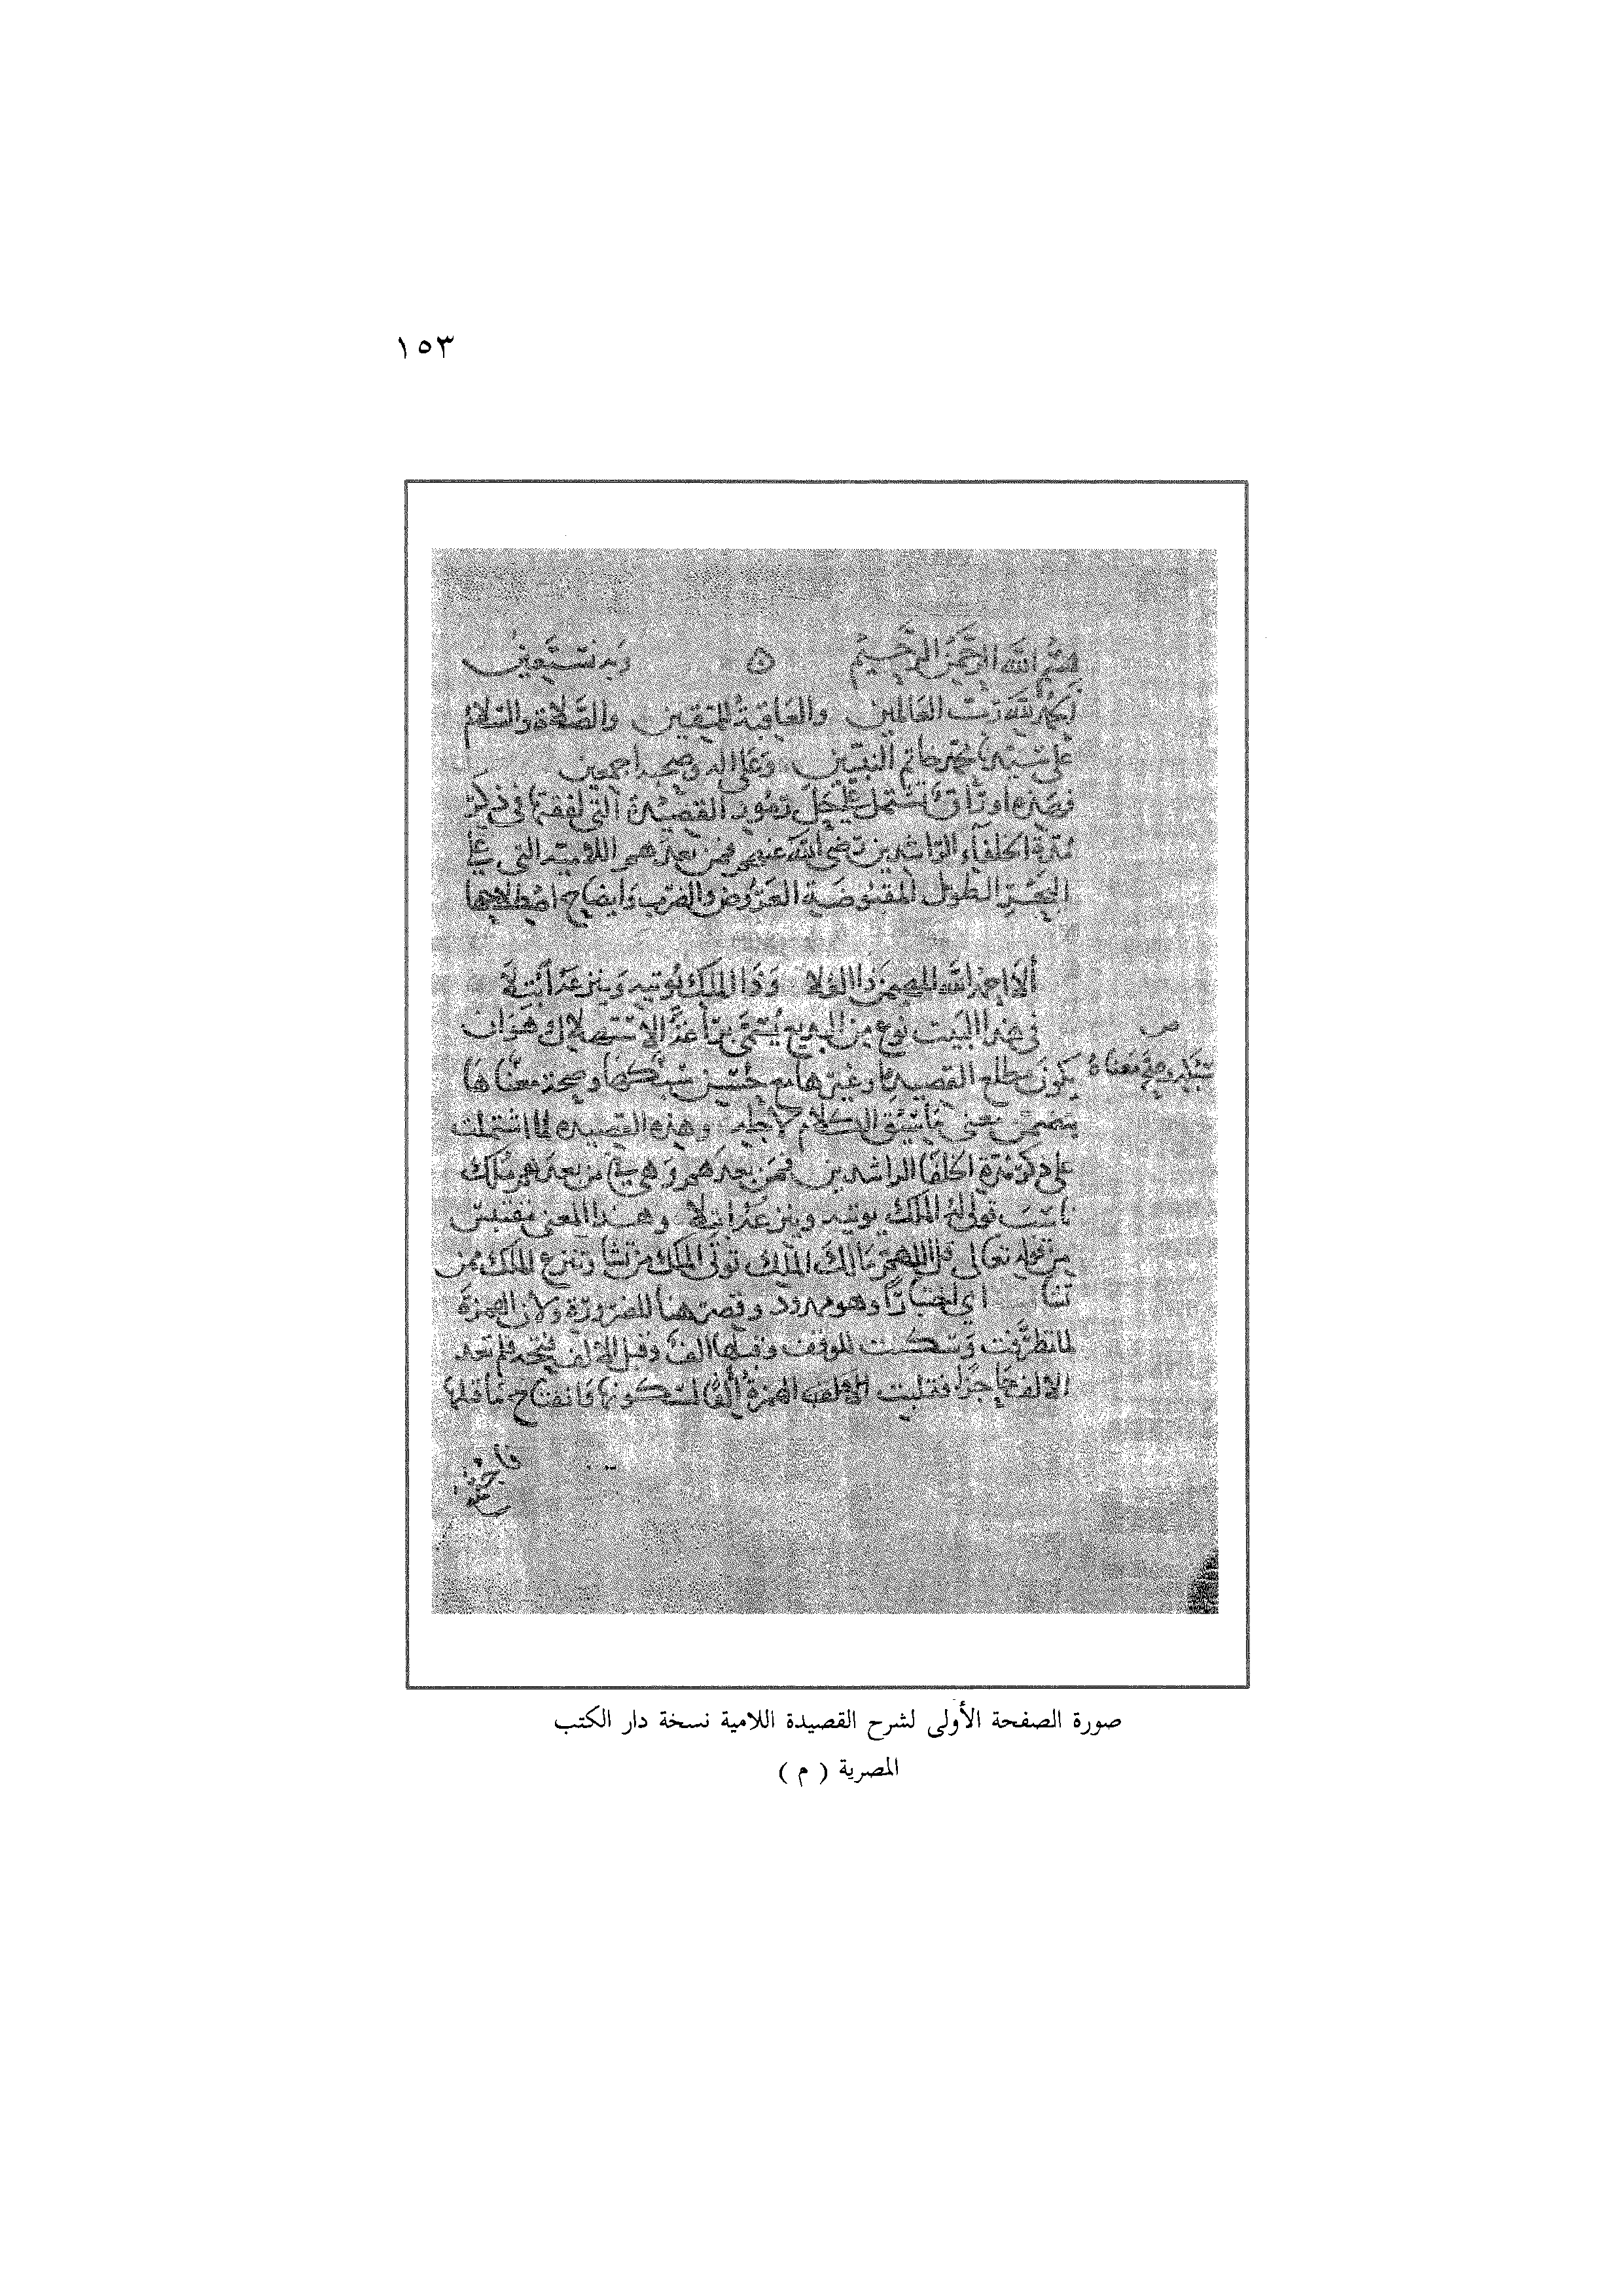 ١٥٣
بسم الله الرحمن الرحيم ٥ وبه نستعين
الحمد لله رب العالمين والعاقبة للمتقين والصلاة والسلام
على سيدنا محمد خاتم النبيين وعلى اله وصحبه اجمعين
فهذه اوراق تشتمل على حل رموز القصيدة التي لفقتها في ذكر
مدة الخلفاء الراشدين رضي الله عنهم فمن بعدهم اللامية التي على
البحر الطويل المقبوضة العروض والضرب وايضاح اصطلاحها
ألا احمد الله المهيمن ذا الولا وذا الملك يوتيه وينزعه ابتلا
في هذا البيت نوع من البديع يسمى براعة الاستهلال وهو ان
يكون مطلع القصيدة وغيرها مع حسن سبكها وصحة معناها
سبكه وصحة معناه
ص
يتضمن معنى ما سيق الكلام لاجله وهذه القصيده لما اشتملت
على ذكر مدة الخلفا الراشدين فمن بعدهم وهي من بعدهم ملك
ناسب قولي الملك يوتيه وينزعه ابتلا وهذا المعنى مقتبس
من قوله تعالى قل اللهم مالك الملك توتي الملك من تشا وتنزع الملك ممن
تشا اي اختبارا وهو ممدود وقصر هنا للضرورة ولان الهمزة
لما تطرفت وسكنت للوقف وقبلها الف وقبل الالف فتحه فلم تعد
الالف حاجزا فقلبت الهمزة ألفا لسكونها وانفتاح ما قبلها
صورة الصفحة الأولى لشرح القصيدة اللامية نسخة دار الكتب
المصرية ( م )